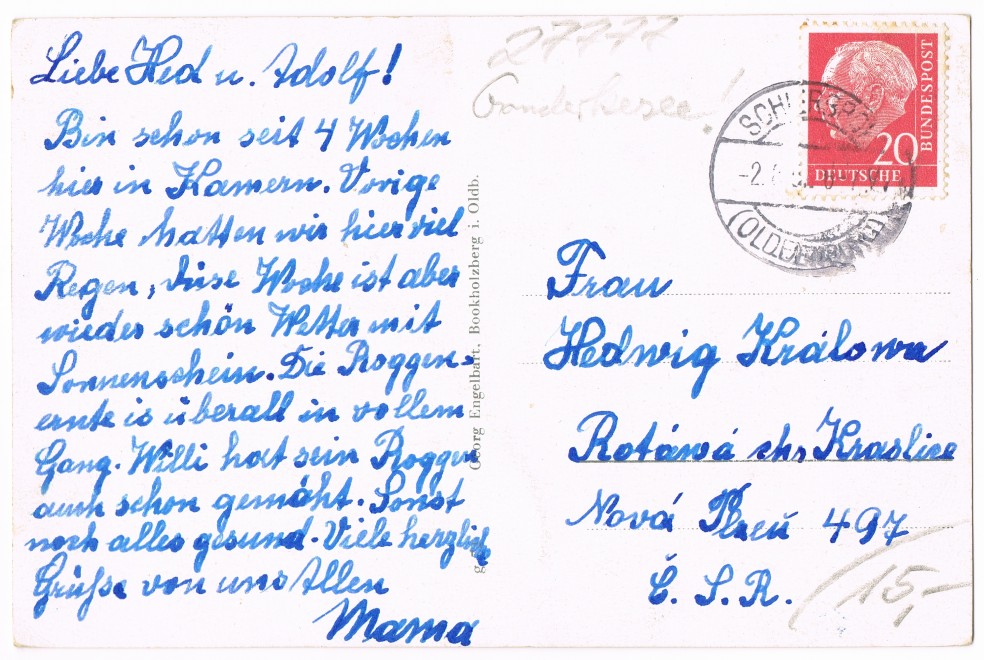 Liebe Hed u. Adolf!
Bin schon seit 4 Wochen
hier in Kamern. Vorige
Woche hatten wir hier viel
Regen, diese Woche ist aber
wieder schön Wetter mit
Sonnenschein. Die Roggen-
ernte is überall in vollem
Gang. Willi hat sein Roggen
auch schon gemäht. Sonst
noch alles gesund. Viele herzliche
Grüße von uns Allen
Mama
Georg Engelbart, Bookholzberg i. Oldb.
27777
Ganderkesee!
DEUTSCHE
BUNDESPOST
20
(OLDENBURG)
Frau
Hedwig Králowa
Rotáwá chs Kraslice
Nová Plzeň 497
Č. S. R.
(15,-